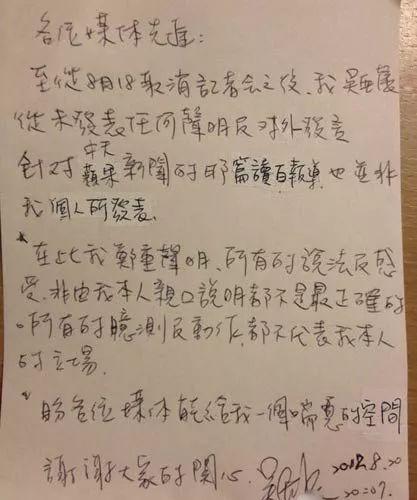 各位媒体先進:
至從8月18取消記者会之後,我吳亞馨
從未發表任何聲明及对外發言
針对中天蘋果新聞的那篇讀者報車,也並非
我個人所發表.
*在此我鄭重聲明.所有的說法及感
受,非由我本人親口說明都不是最正確的
。所有的臆測及動作,都不代表我本人
的立場.
*盼各位媒体能給我一個喘息的空間
謝謝大家的関心. 2012.8.20
20:07.